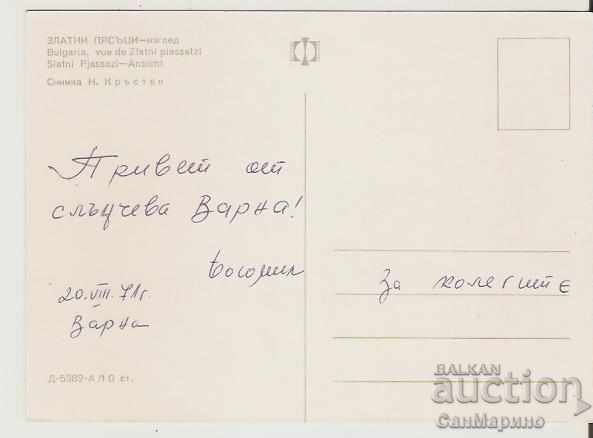 ЗЛАТНИ ПЯСЪЦИ—изглед
Bulgaria, vue de Zlatni piassatzi
Slatni Pjassazi—Ansicht
Снимка Н. Кръстев
Привет от
слънчева Варна!
Богомил
20.VIII.71г.
Варна
За колегите
Д-5382-А ЛО ст.
BALKAN
auction
СанМарино